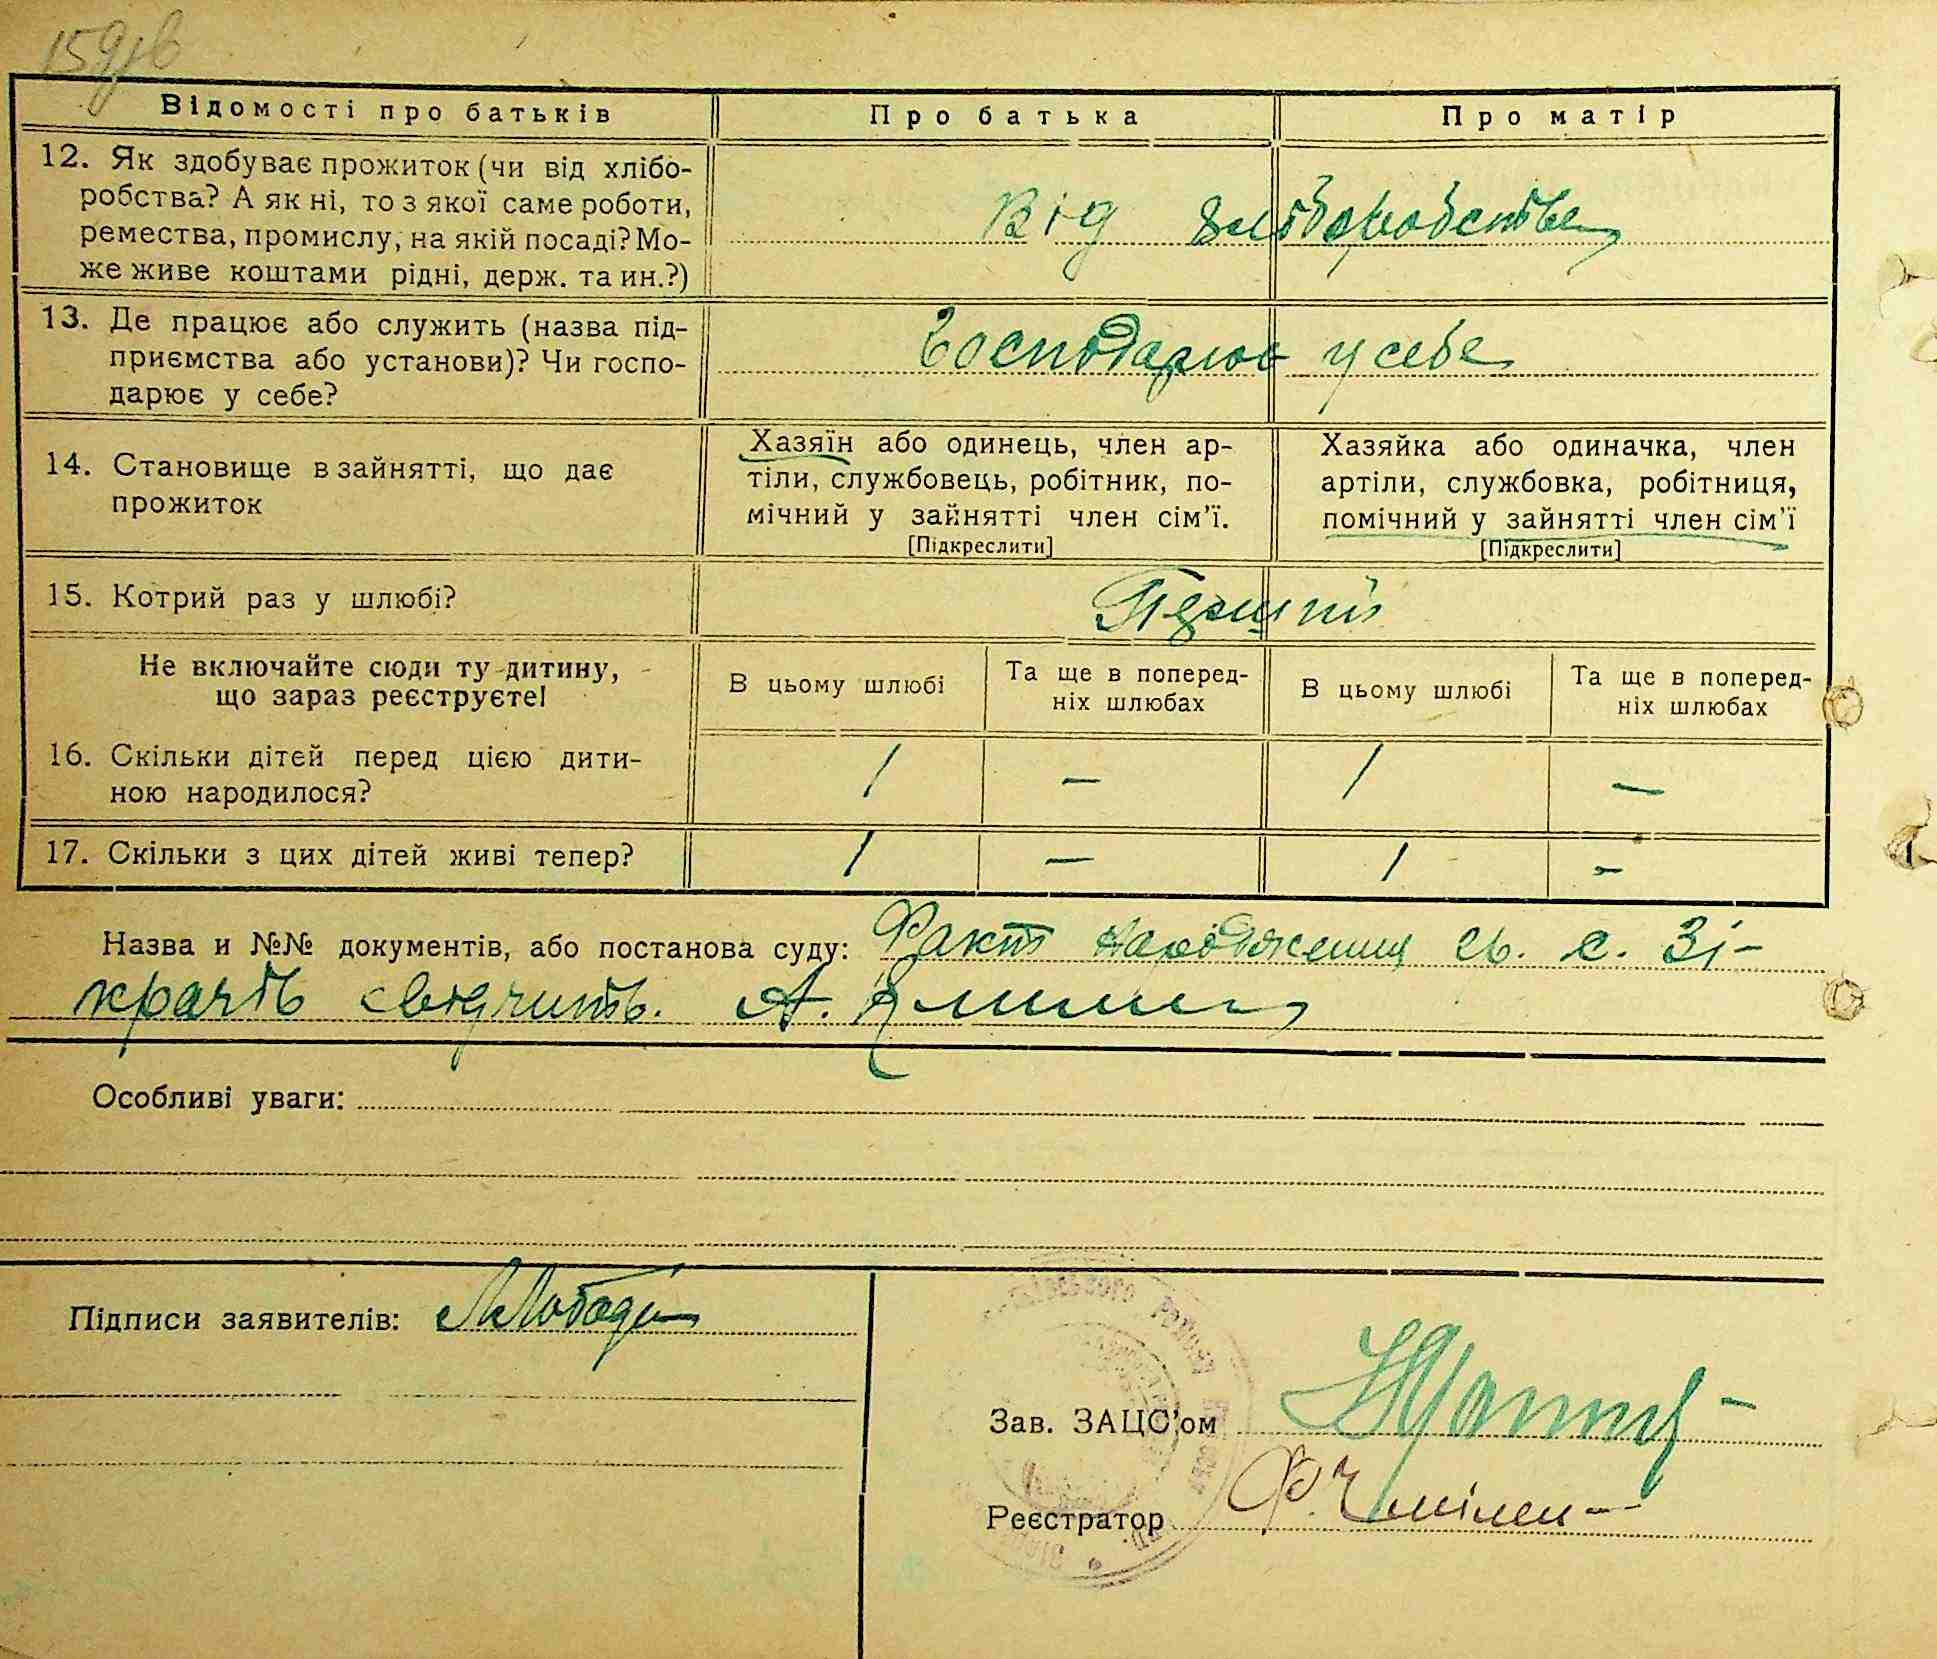 Відомості про батьків Про батька Про матір
12. Як здобуває прожиток (чи від хлібо-
робства? А як ні, то з якої саме роботи,
ремества, промислу, на якій посаді? Мо-
же живе коштами рідні, держ. та ин.?)
Від хліборобства
13. Де працює або служить (назва під-
приємства або установи)? Чи госпо-
дарює у себе?
Господарює у себе
14. Становище в зайнятті, що дає
прожиток
Хазяїн або одинець, член ар-
тіли, службовець, робітник, по-
мічний у зайнятті член сім'ї.
[Підкреслити]
Хазяйка або одиначка, член
артіли, службовка, робітниця,
помічний у зайнятті член сім'ї
[Підкреслити]
15. Котрий раз у шлюбі?
Перший
Не включайте сюди ту дитину,
що зараз реєструєте!
В цьому шлюбі
Та ще в поперед-
ніх шлюбах
В цьому шлюбі
Та ще в поперед-
ніх шлюбах
16. Скільки дітей перед цією дити-
ною народилося?
1 — 1 —
17. Скільки з цих дітей живі тепер?
1 — 1 -
Назва и №№ документів, або постанова суду: Факт народження с. Зі-
свідчить. А.
Особливі уваги:
Підписи заявителів:
Зав. ЗАЦС'ом
Реєстратор Ф.